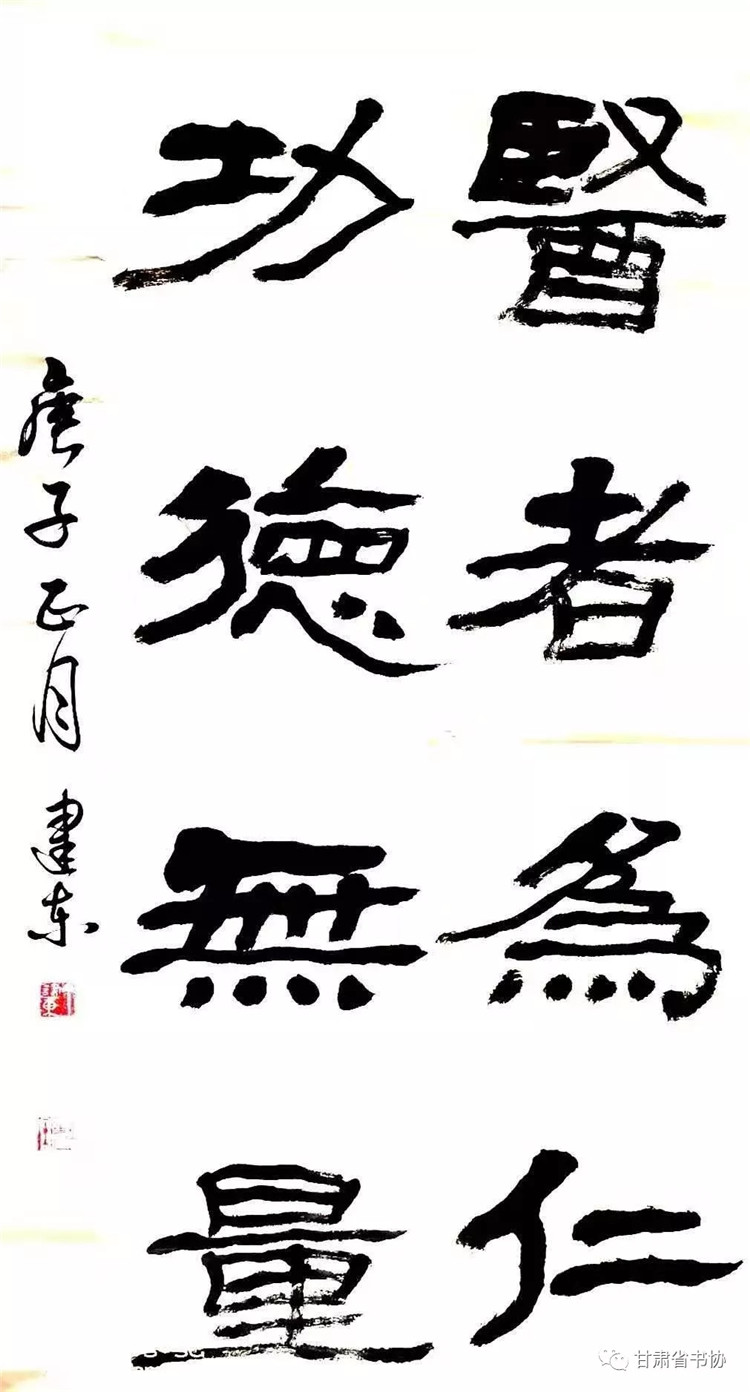 醫者為仁
功德無量
庚子正月 建东
甘肃省书协